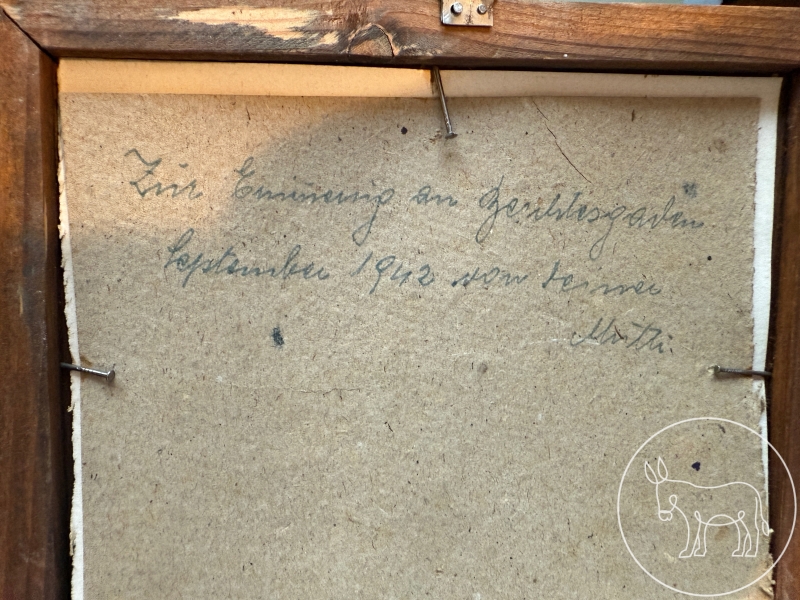 Zur Erinnerung an Berchtesgaden
September 1942 von deiner
Mutti.